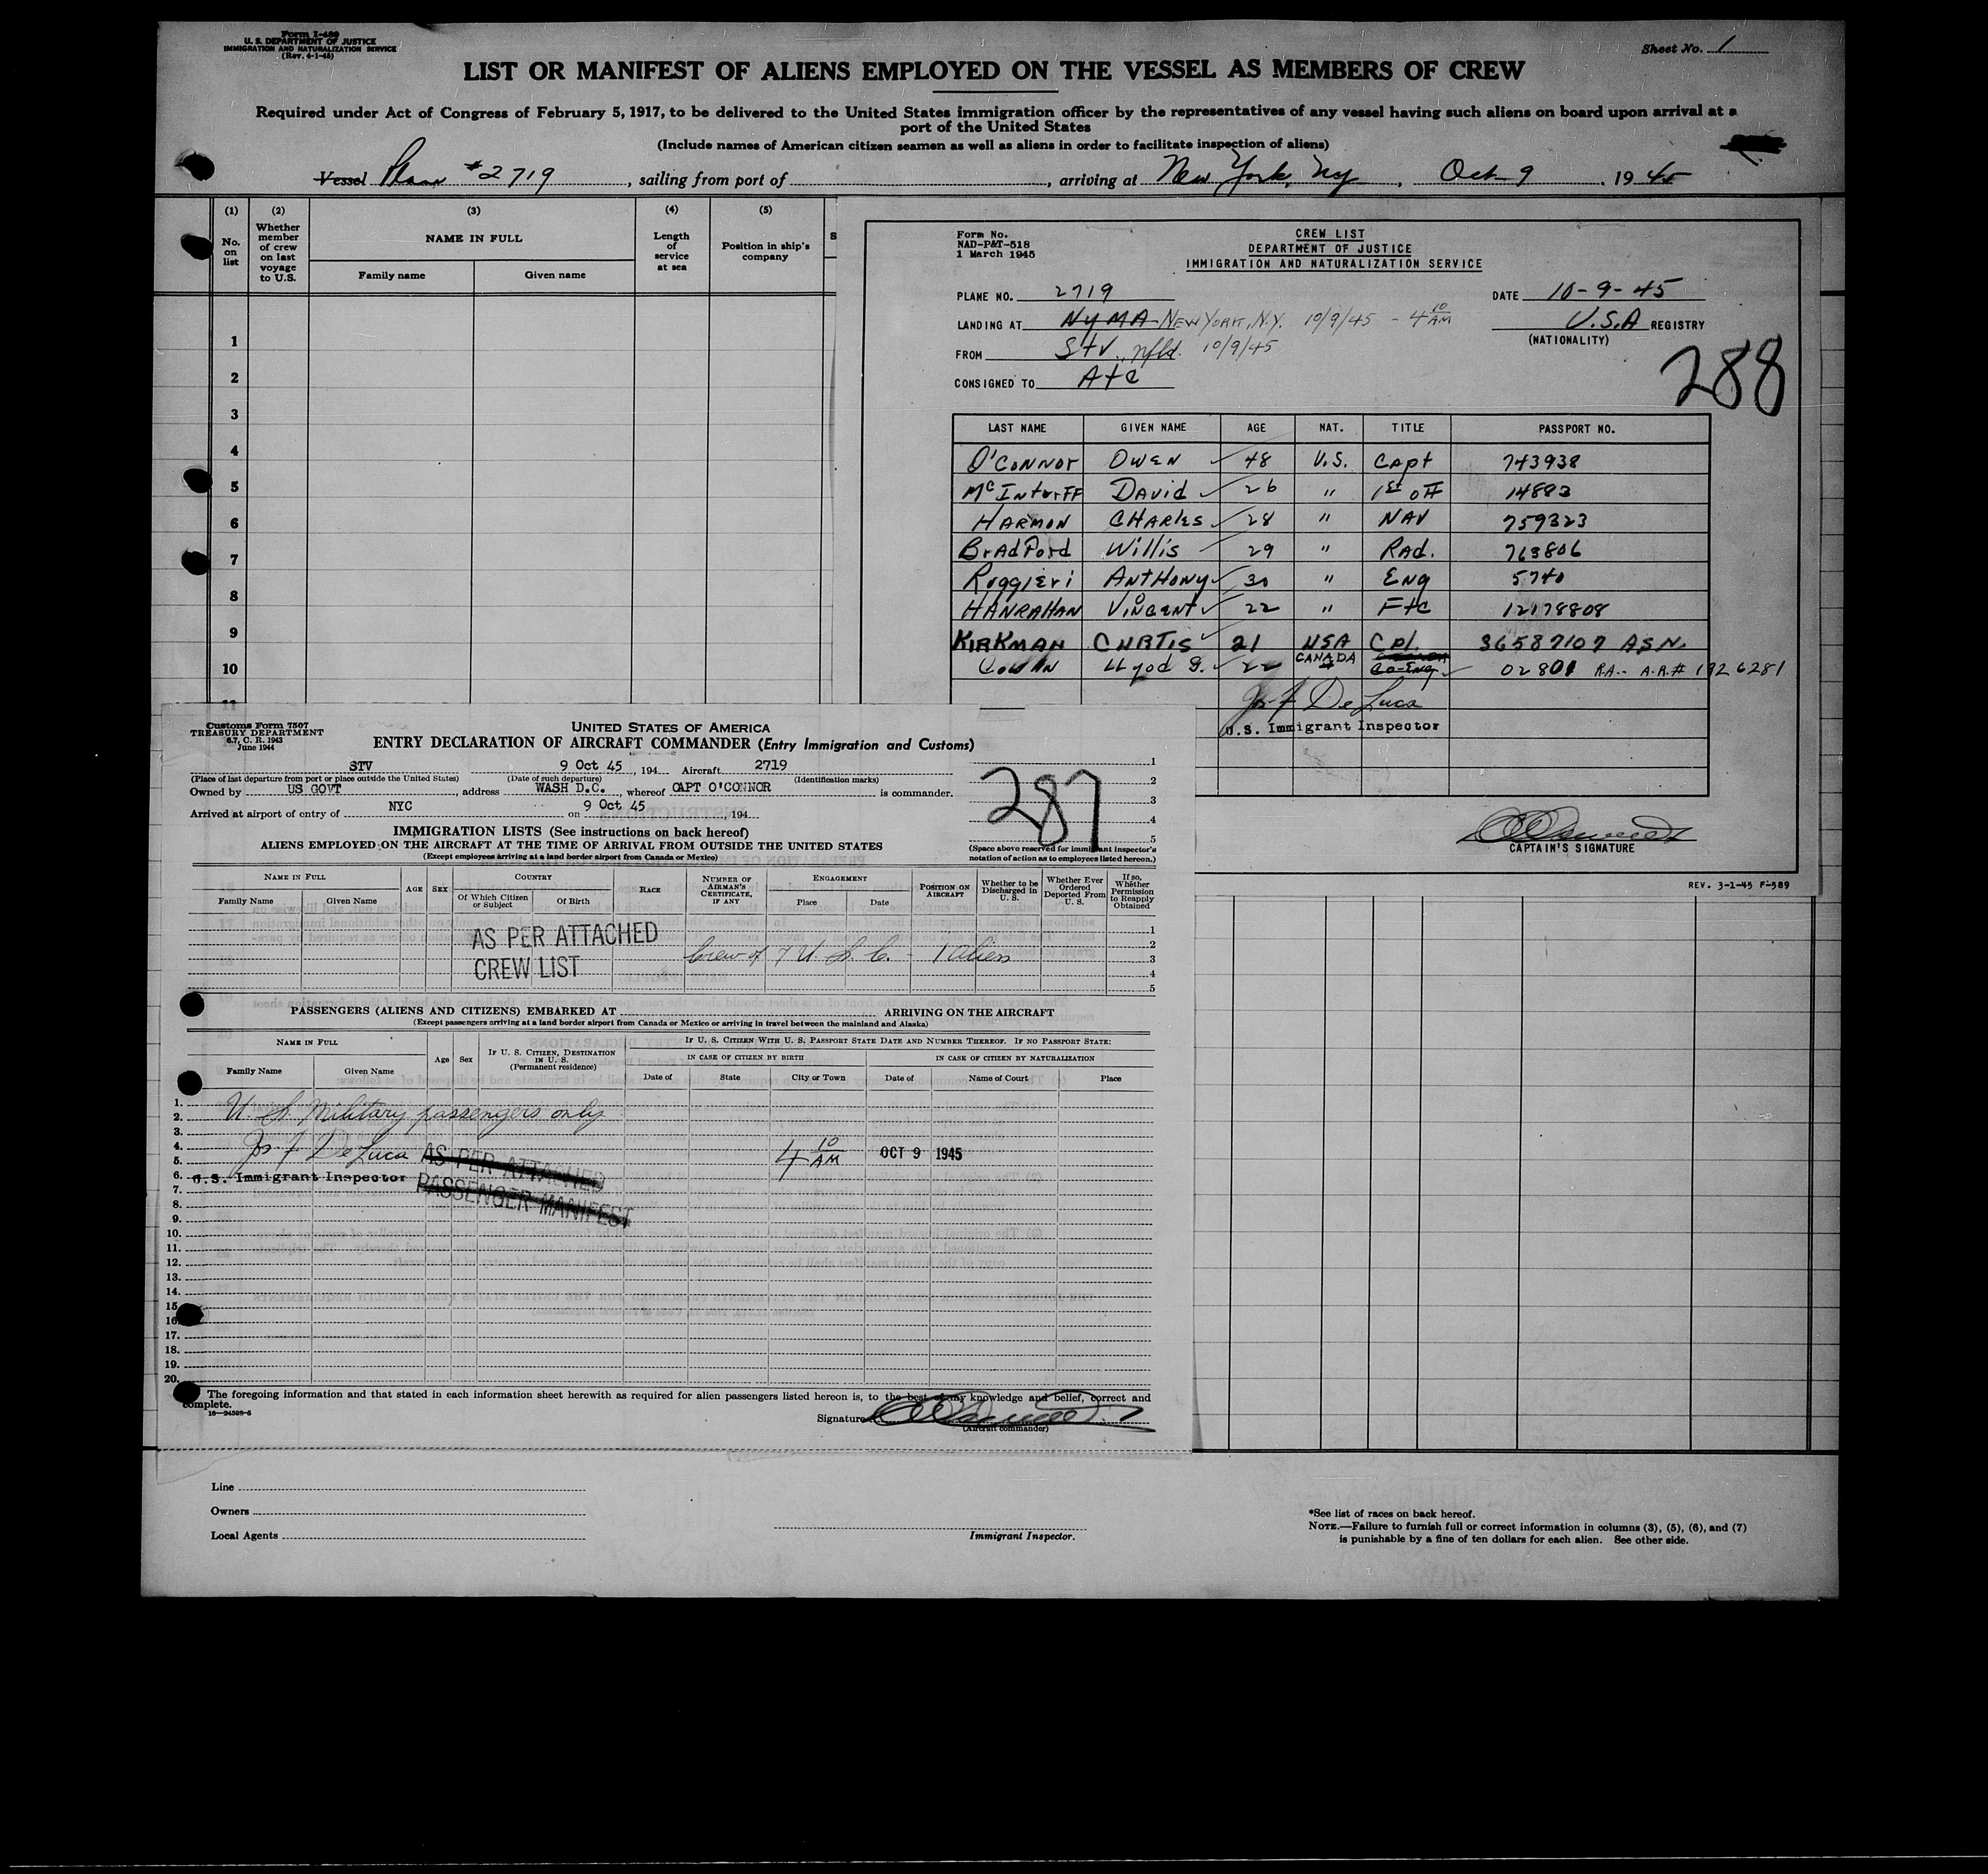 Form I-480
U. S. DEPARTMENT OF JUSTICE
IMMIGRATION AND NATURALIZATION SERVICE
(Rev. 4-1-45)
Sheet No. 1
LIST OR MANIFEST OF ALIENS EMPLOYED ON THE VESSEL AS MEMBERS OF CREW
Required under Act of Congress of February 5, 1917, to be delivered to the United States immigration officer by the representatives of any vessel having such aliens on board upon arrival at a
port of the United States
(Include names of American citizen seamen as well as aliens in order to facilitate inspection of aliens)
Vessel Plane #2719, sailing from port of , arriving at New York, NY, Oct 9, 1945
(1) (2) (3) (4) (5)
No. on list
Whether member of crew on last voyage to U.S.
NAME IN FULL
Family name Given name
Length of service at sea
Position in ship's company
1
2
3
4
5
6
7
8
9
10
11
Form No.
NAD-P&T-518
1 March 1945
CREW LIST
DEPARTMENT OF JUSTICE
IMMIGRATION AND NATURALIZATION SERVICE
PLANE NO. 2719 DATE 10-9-45
LANDING AT NYMA NEW YORK, N.Y. 10/9/45 - 4 10 AM U.S.A REGISTRY
(NATIONALITY)
FROM STV., Nfld. 10/9/45
CONSIGNED TO ATC
288
LAST NAME GIVEN NAME AGE NAT. TITLE PASSPORT NO.
O'CONNOR OWEN 48 U.S. Capt 743938
McInturFF DAVID 26 " 1st off 14893
HARMON CHARLES 28 " NAV 759323
BradFord Willis 29 " RAD. 763806
RuggiEri ANTHONY 30 " ENg 5740
HANRAHAN VINCENT 22 " Ftc 12178808
KIRKMAN CURTIS 21 USA Cpl. 36587107 ASN.
Cowan Llyod G. 22 CANADA Co-Eng. 02801 RA.- A.R.# 1926281
Jos F De Luca
U.S. Immigrant Inspector
CAPTAIN'S SIGNATURE
REV. 3-1-45 F-589
Customs Form 7507
TREASURY DEPARTMENT
6.7, C. R. 1943
June 1944
UNITED STATES OF AMERICA
ENTRY DECLARATION OF AIRCRAFT COMMANDER (Entry Immigration and Customs)
STV 9 Oct 45, 194 Aircraft 2719
(Place of last departure from port or place outside the United States) (Date of such departure) (Identification marks)
Owned by US GOVT, address WASH D.C., whereof CAPT O'CONNOR is commander.
Arrived at airport of entry of NYC on 9 Oct 45, 194
1
2
3
4
5
287
(Space above reserved for immigrant inspector's
notation of action as to employees listed hereon.)
IMMIGRATION LISTS (See instructions on back hereof)
ALIENS EMPLOYED ON THE AIRCRAFT AT THE TIME OF ARRIVAL FROM OUTSIDE THE UNITED STATES
(Except employees arriving at a land border airport from Canada or Mexico)
NAME IN FULL
Family Name Given Name
AGE SEX
COUNTRY
Of Which Citizen or Subject Of Birth
RACE
NUMBER OF AIRMAN'S CERTIFICATE, IF ANY
ENGAGEMENT
Place Date
POSITION ON AIRCRAFT
Whether to be Discharged in U. S.
Whether Ever Ordered Deported From U. S.
If so, Whether Permission to Reapply Obtained
AS PER ATTACHED
CREW LIST
Crew of 7 U. S. C. - 1 alien
1
2
3
4
5
PASSENGERS (ALIENS AND CITIZENS) EMBARKED AT ARRIVING ON THE AIRCRAFT
(Except passengers arriving at a land border airport from Canada or Mexico or arriving in travel between the mainland and Alaska)
NAME IN FULL
Family Name Given Name
Age Sex
IF U. S. CITIZEN, DESTINATION IN U. S.
(Permanent residence)
IF U. S. CITIZEN WITH U. S. PASSPORT STATE DATE AND NUMBER THEREOF. IF NO PASSPORT STATE:
IN CASE OF CITIZEN BY BIRTH IN CASE OF CITIZEN BY NATURALIZATION
Date of State City or Town Date of Name of Court Place
1.
2. U. S. Military passengers only
3.
4. Jos F De Luca AS PER ATTACHED 4 10 AM OCT 9 1945
5.
6. U.S. Immigrant Inspector PASSENGER MANIFEST
7.
8.
9.
10.
11.
12.
13.
14.
15.
16.
17.
18.
19.
20.
The foregoing information and that stated in each information sheet herewith as required for alien passengers listed hereon is, to the best of my knowledge and belief, correct and
complete.
16—24508-5
Signature
(Aircraft commander)
Line
Owners
Local Agents
Immigrant Inspector.
*See list of races on back hereof.
NOTE.—Failure to furnish full or correct information in columns (3), (5), (6), and (7)
is punishable by a fine of ten dollars for each alien. See other side.